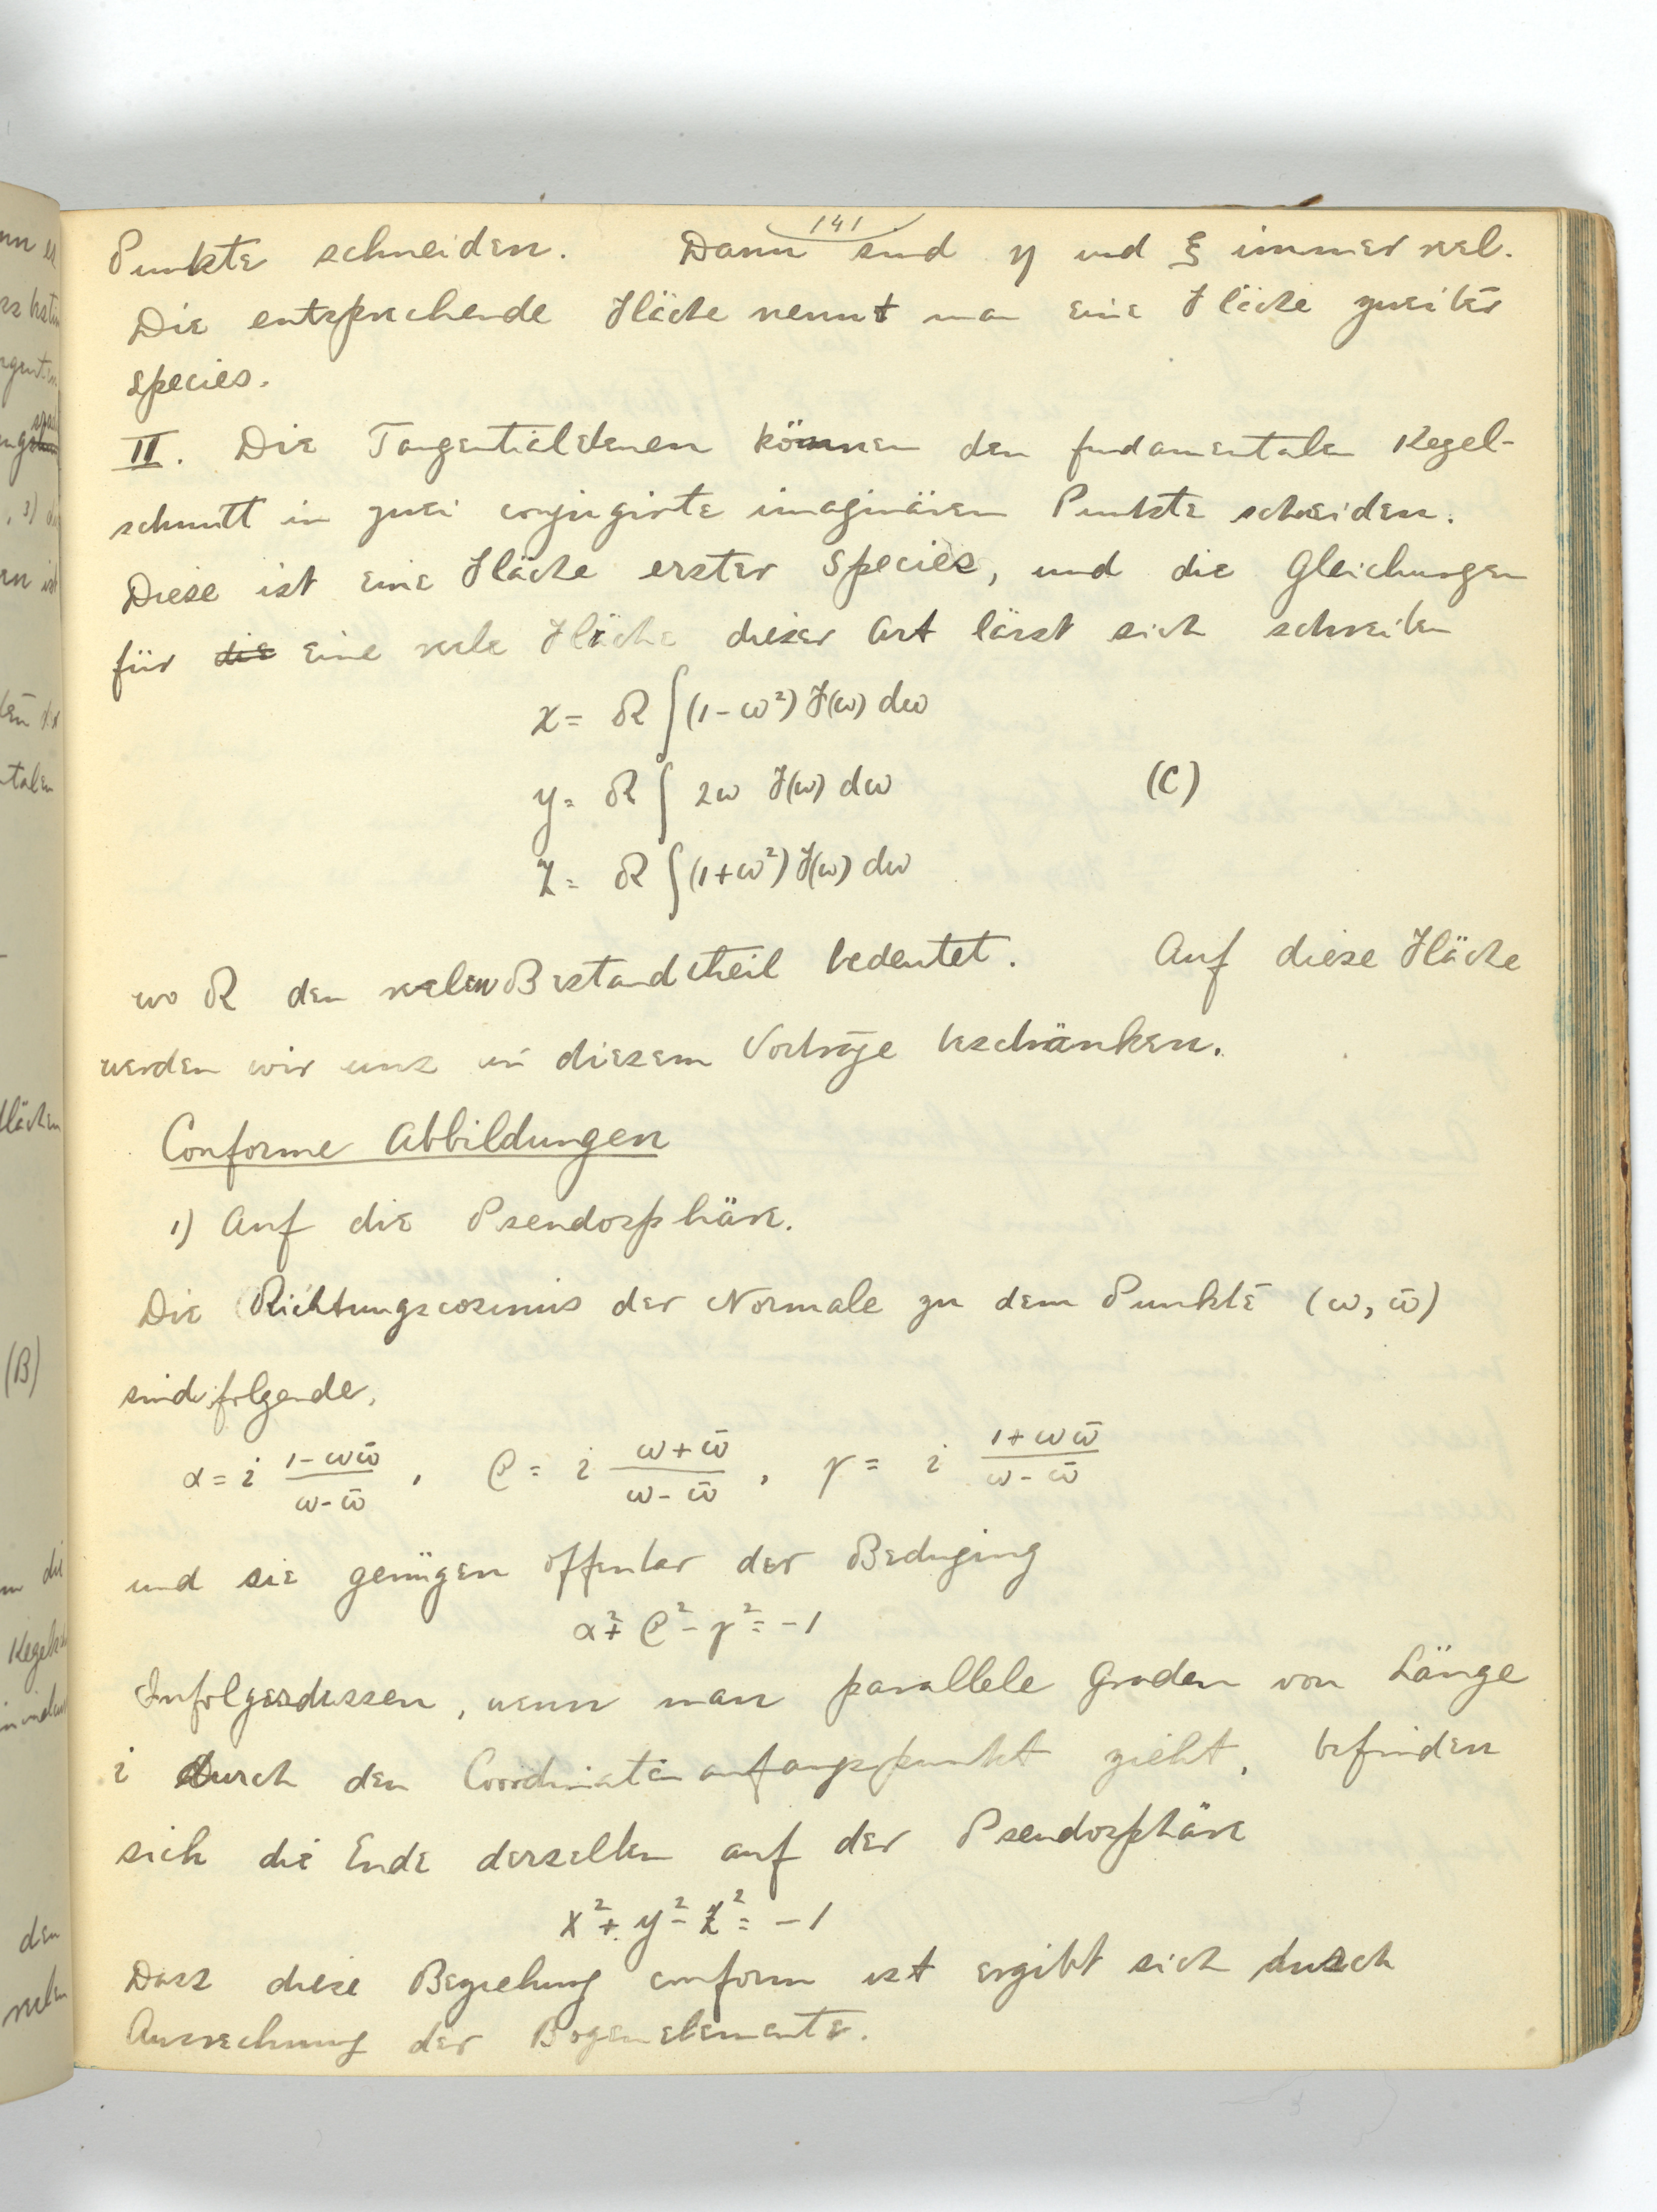 141
Punkte schneiden. Dann sind η und ξ immer reel.
Die entsprechende Fläche nennt man eine Fläche zweiter
Species.
II. Die Tangentialebenen können den fundamentalen Kegel-
schnitt in zwei conjugirte imaginären Punkte schneiden.
Diese ist eine Fläche erster Species, und die Gleichungen
für die eine reele Fläche dieser Art lässt sich schreiben
x = R ∫(1-ω²) F(ω) dω
y = R ∫ 2ω F(ω) dω (C)
z = R ∫(1+ω²) F(ω) dω
wo R den reelen Bestandtheil bedeutet. Auf diese Fläche
werden wir uns in diesem Vortrage beschränken.
Conforme Abbildungen
1) Auf die Pseudosphäre.
Die Richtungscosinus der Normale zu dem Punkte (ω, ω̄)
sind folgende,
α = i (1-ωω̄)/(ω-ω̄), β = i (ω+ω̄)/(ω-ω̄), γ = i (1+ωω̄)/(ω-ω̄)
und sie genügen offenbar der Bedingung
α² + β² - γ² = -1
Infolgesdessen, wenn man parallele Graden von Länge
i durch den Coordinatenanfangspunkt zieht, befinden
sich die Ende derselben auf der Pseudosphäre
x² + y² - z² = -1
Dass diese Beziehung conform ist ergibt sich durch
Ausrechnung der Bogenelemente.